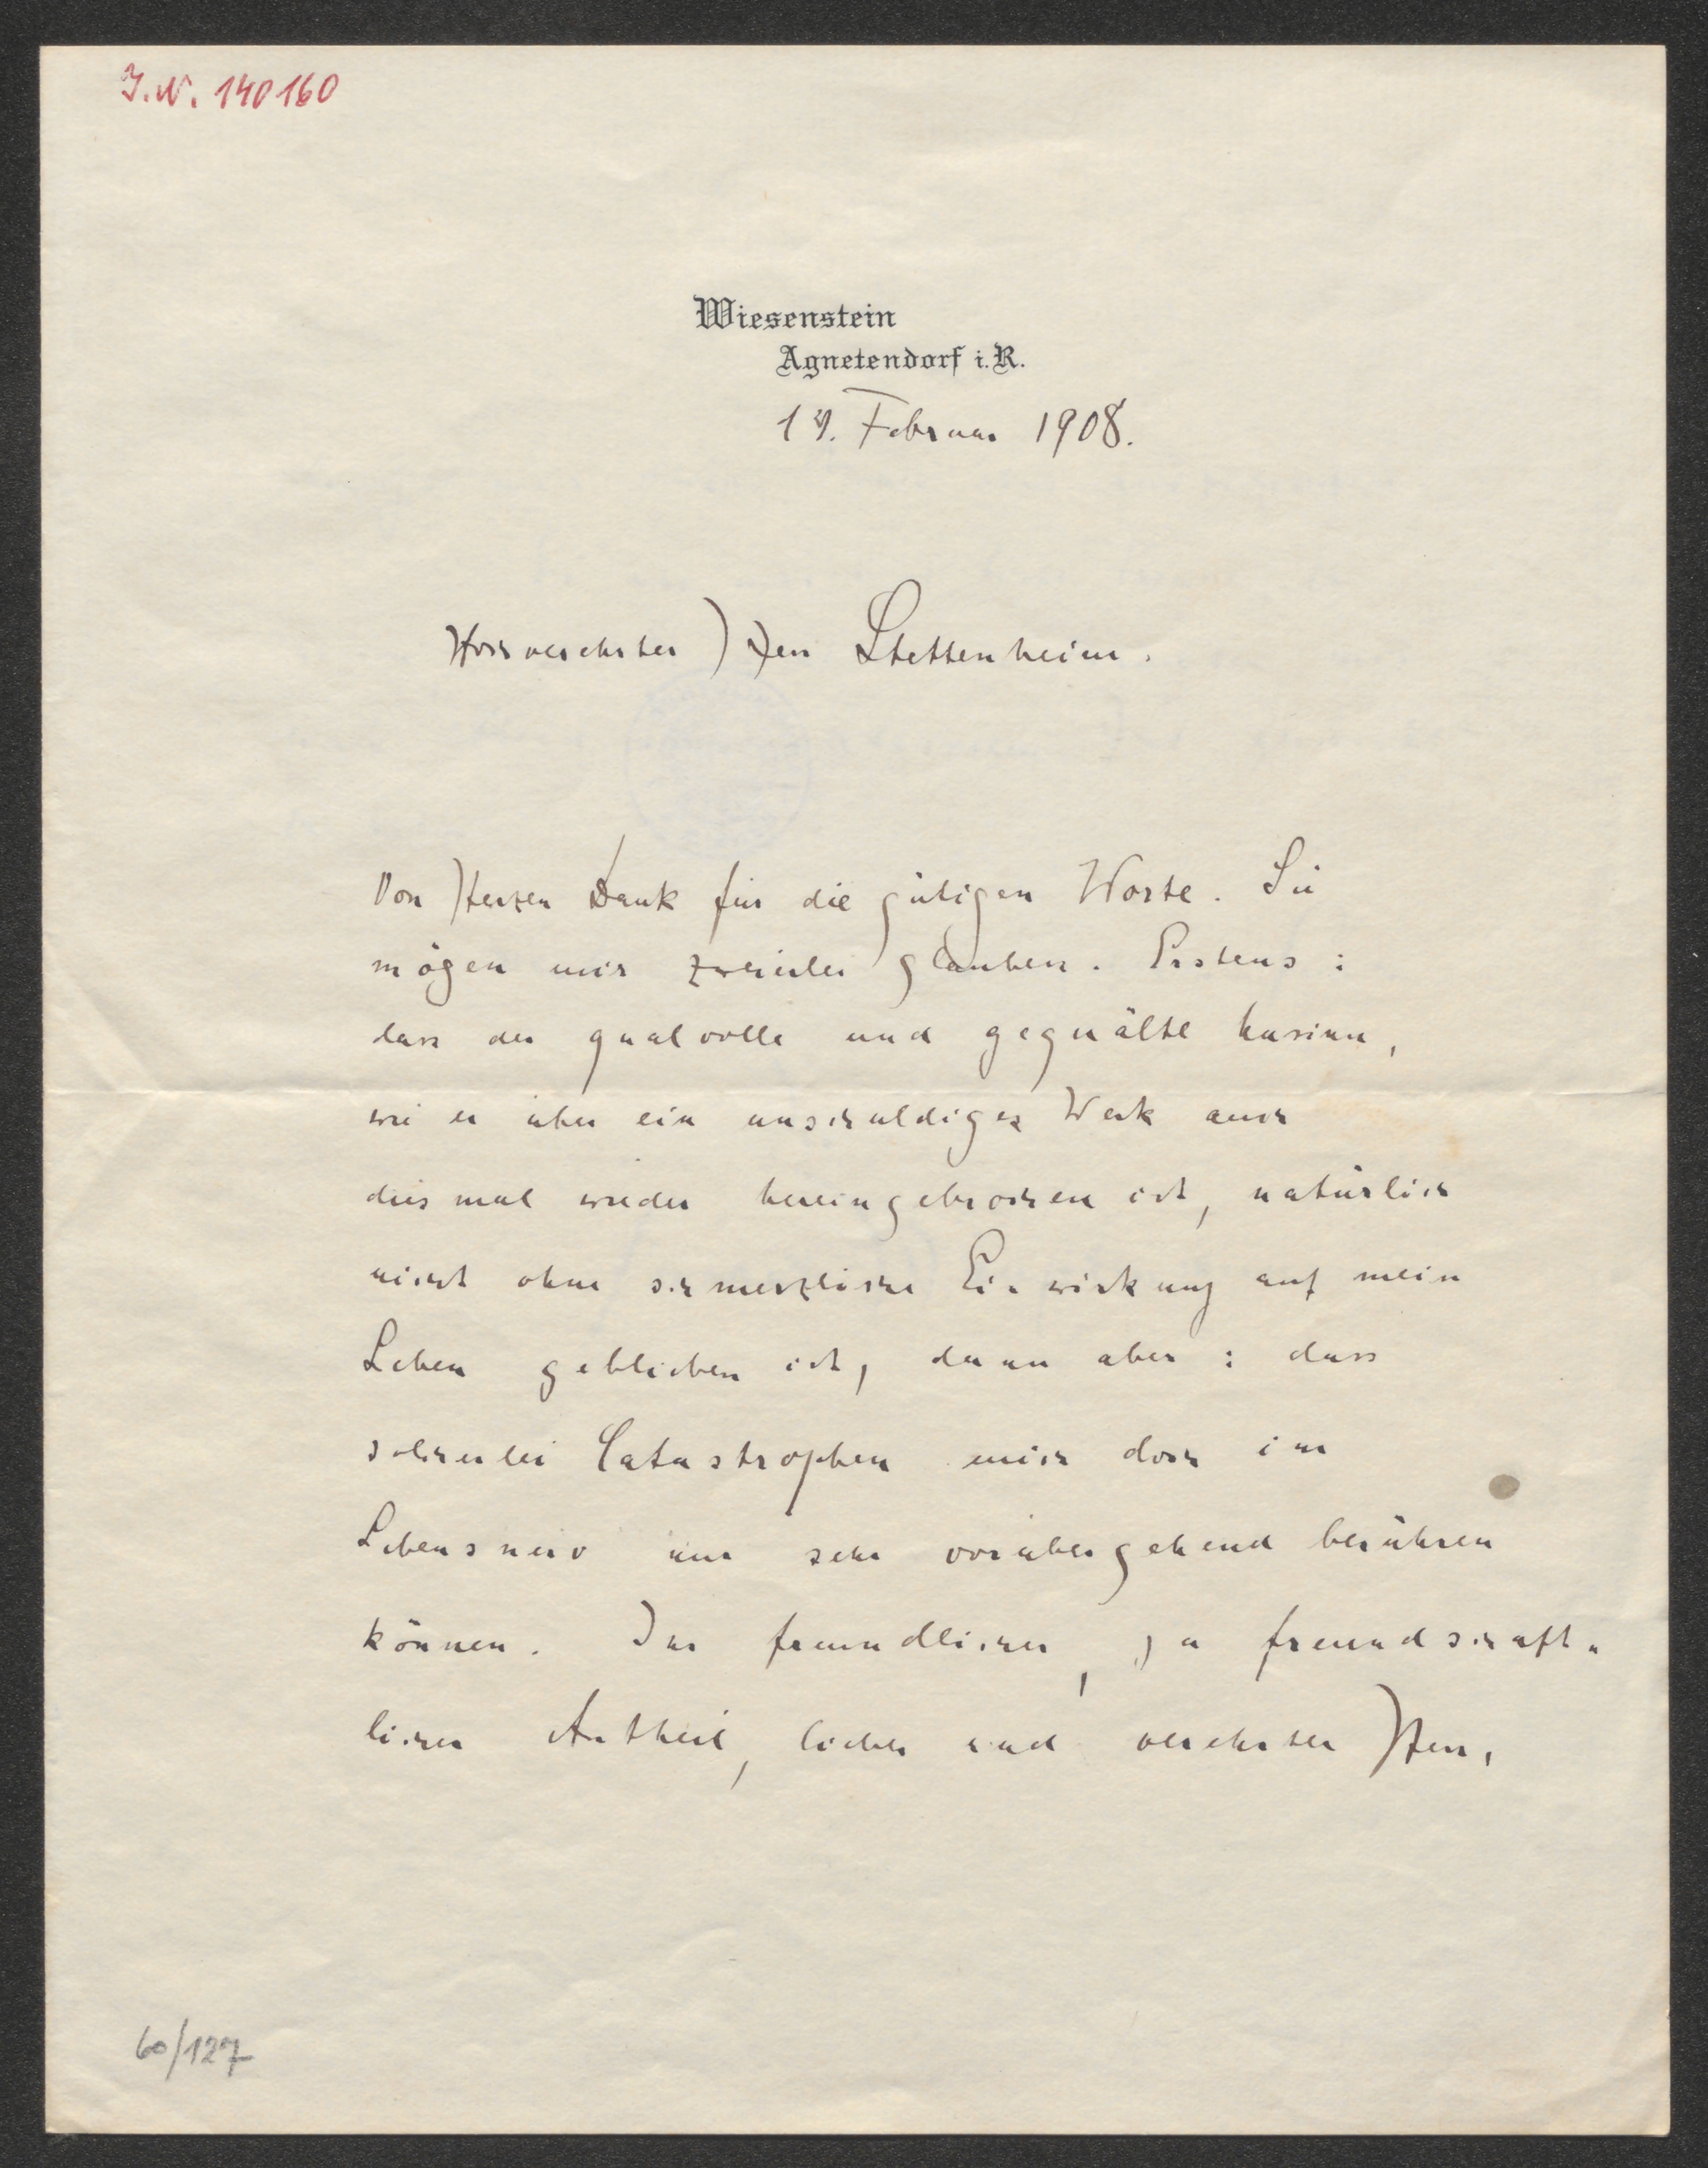 J.N. 140160
Wiesenstein
Agnetendorf i. R.
14. Februar 1908.
Hochverehrter Herr Stettenheim.
Von Herzen Dank für die gütigen Worte. Sie
mögen mir zweierlei glauben. Erstens:
dass der qualvolle und gequälte
wie er über ein unschuldiges Werk auch
dies mal wieder hereingebrochen ist, natürlich
nicht ohne schmerzliche Einwirkung auf mein
Leben geblieben ist, dann aber: dass
solcherlei Catastrophen mich doch im
Lebensnerv nur sehr vorübergehend berühren
können. Ihr freundlicher, ja freundschaft-
licher Antheil, lieber und verehrter Herr,
60/127